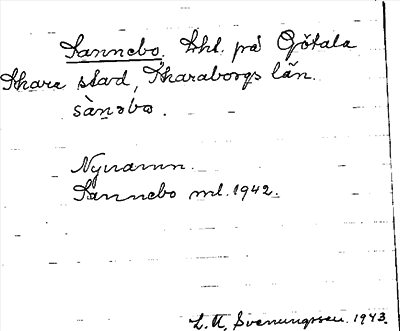 Sannebo, Lht. på Götala
Skara stad, Skaraborgs län.
sànəbo.
Nynamn.
Sannebo ml. 1942.
Svenungsson. 1943.